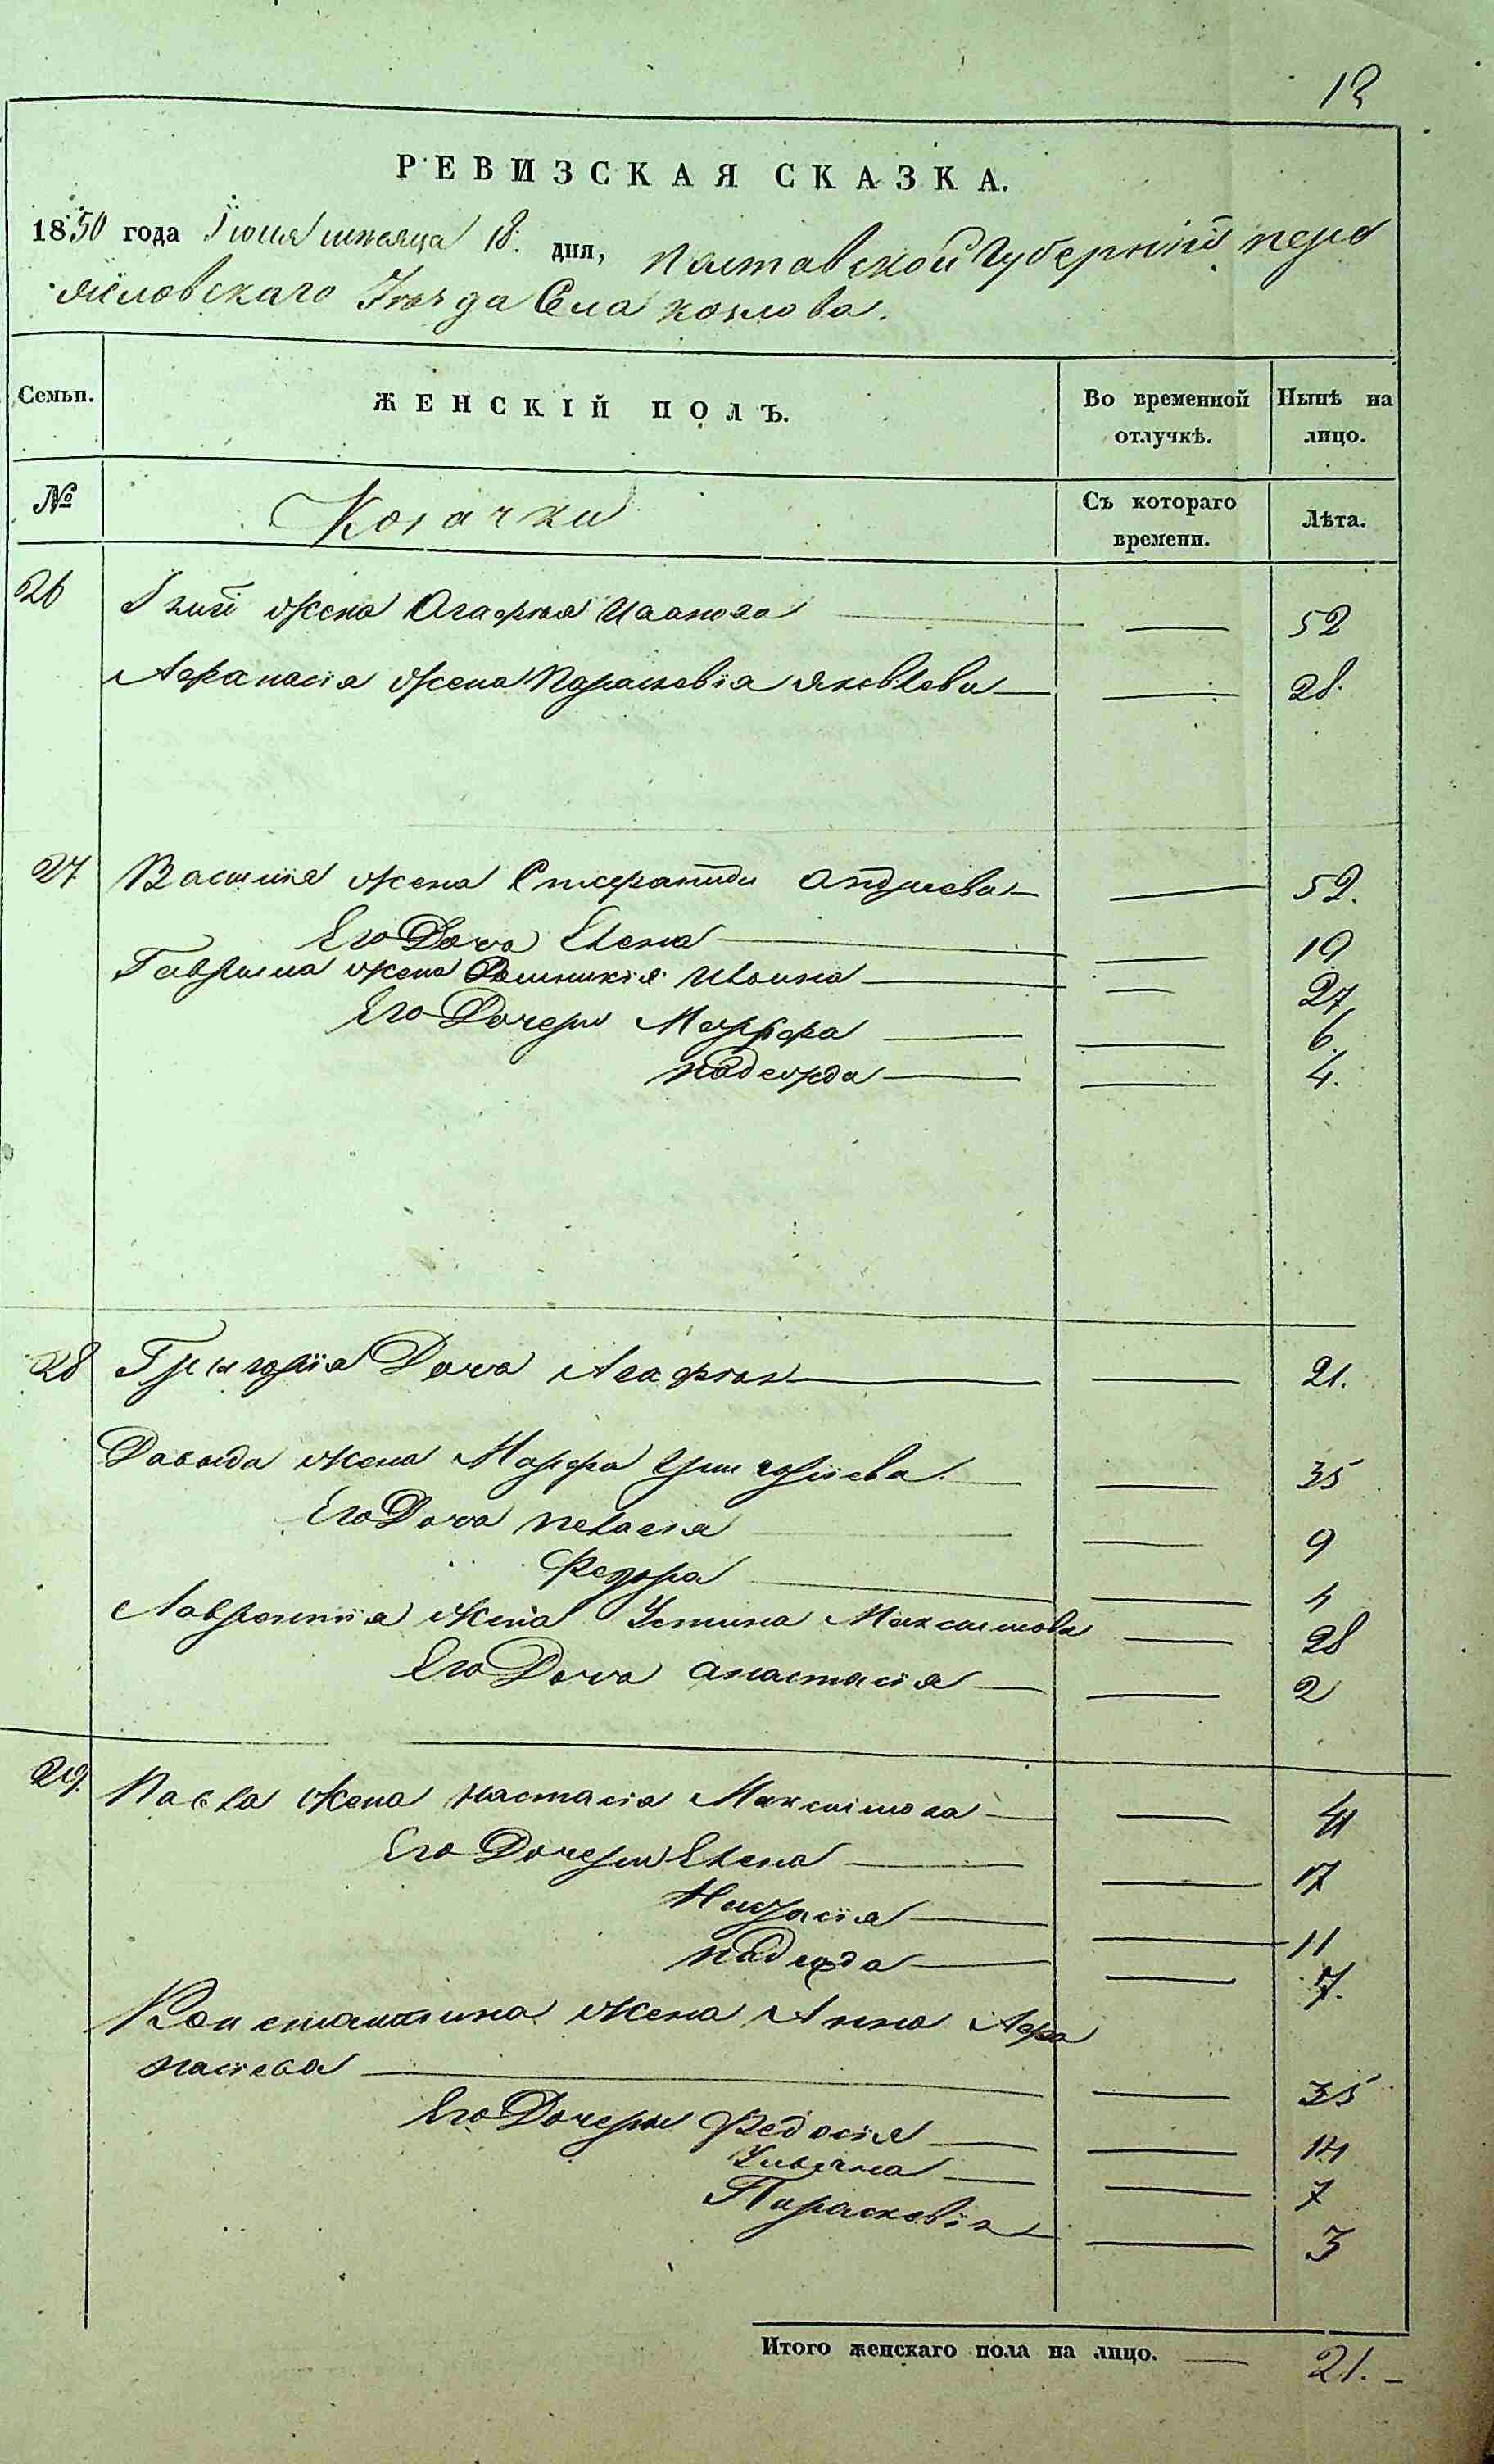 13
РЕВИЗСКАЯ СКАЗКА.
1850 года Іюня мѣсяца 18. дня, Полтавской Губерніи пере
яславскаго Уѣзда Села козлова.
Семьи.
ЖЕНСКІЙ ПОЛЪ.
Во временной отлучкѣ.
Нынѣ на лицо.
№
Козачки
Съ котораго времени.
Лѣта.
26 жена Агафия Иванова — 52
Афанасія жена Параскевія Яковлева — 28.
27. Василія жена Андреева — 52.
Его Доча Елена — 19
Гаврила жена Домникія Ильина — 27
Его Дочери Марфа — 6.
надежда — 4.
28 Григорія Доча Агафия — 21.
Давида жена Марфа григоріева — 35
Его Доча пелагия — 9
Федора — 4
Лаврентія жена Устина Максимова — 28
Его Доча анастасія — 2
29. Павла жена настасія Максимова — 41
Его Дочери Елена — 17
— 11
надежда — 7.
Константина жена Анна Афа
насіева — 35
Его Дочери Федосія — 14
Ульяна — 7
Параскевія — 3
Итого женскаго пола на лицо. — 21. –